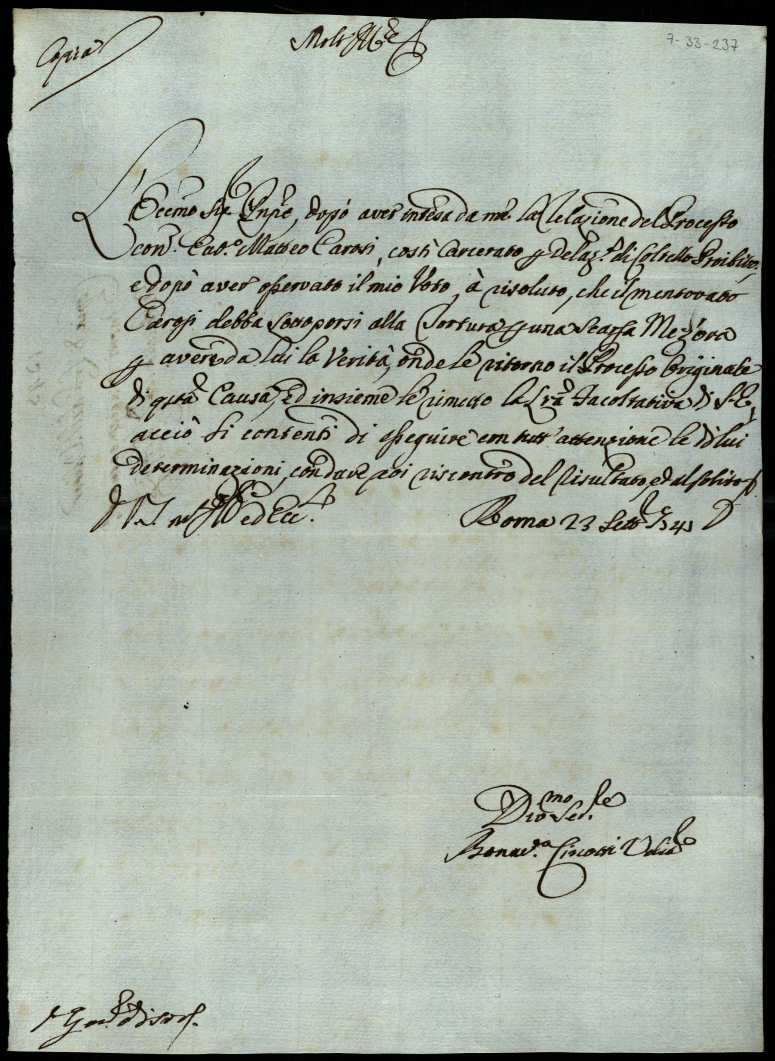 Copia
Molt' Ill.re
7-33-237
L'Eccmo Sig.r Pnpe, dopò aver intesa da me la Relazione del Processo
con.o Cab.o Matteo Carosi, costì Carcerato p delaz.e di Coltello Proibito,
e dopò aver osservato il mio Voto, à risoluto, che il mentovato
Carosi debba sottoporsi alla Tortura p una scarsa Mez'ora
p avere da lui la Verità, onde le ritorno il Processo Originale
di qsta Causa, ed insieme le rimetto la Lrã Facoltativa di S.E,
acciò si contenti di eseguire con tutt' attenzione le di lui
determinazioni, con dave poi riscontro del risultato, ed al solito
ed Ecc. Roma 23 Sett.re 1741
Dio.mo Ser.re
Bonav.a Cinotti Udit.e